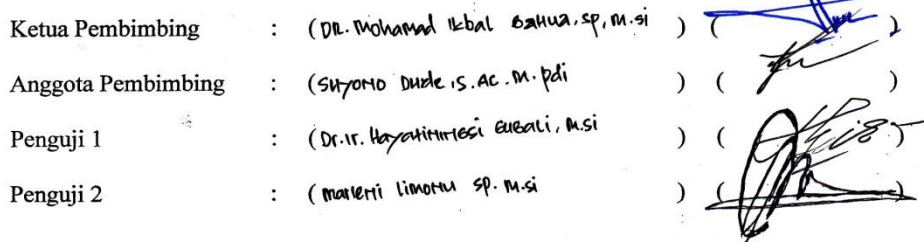 Ketua Pembimbing : (DR. Mohamad Ikbal BaHua, SP, M.si ) ( )
Anggota Pembimbing : (SuyoNo Dude, S. AC. M. pdi ) ( )
Penguji 1 : (Dr. Ir. Gubali, M.si ) ( )
Penguji 2 : (Marleni Limonu SP. M.si ) ( )